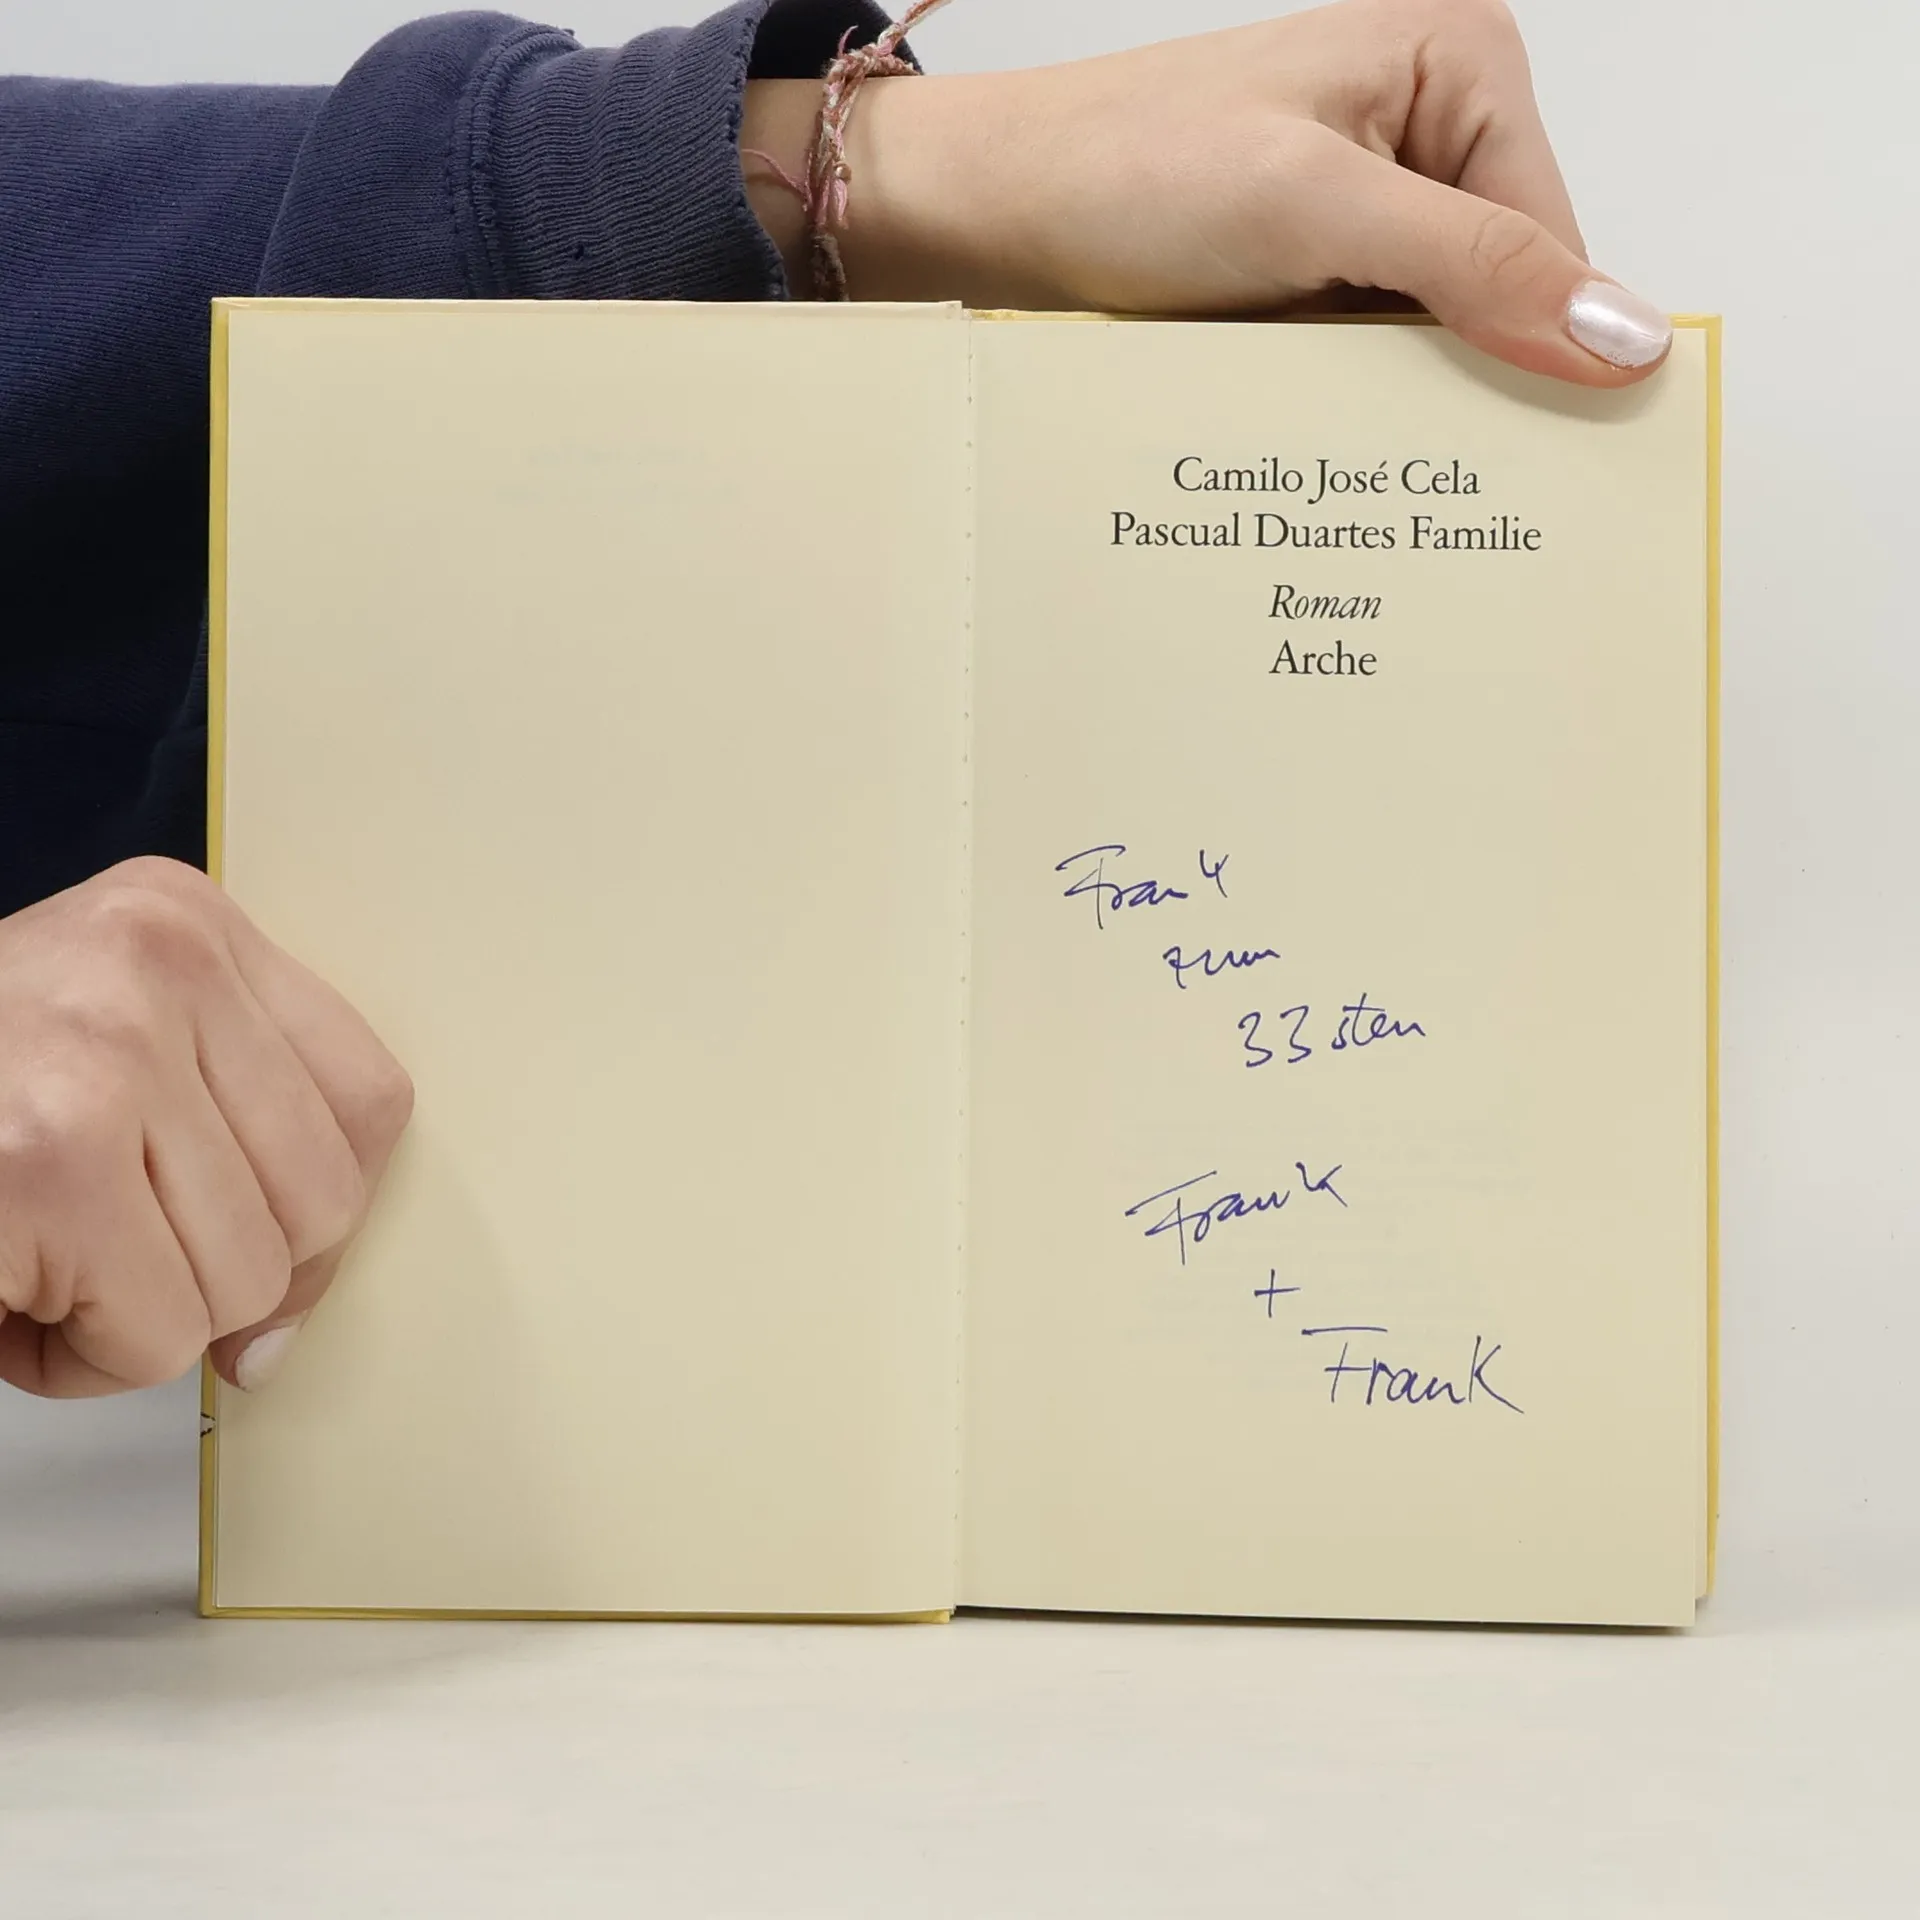 Camilo José Cela
Pascual Duartes Familie
Roman
Arche
Frank
zum
33sten
Frank
+
Frank